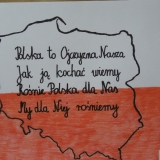 Polska to Ojczyzna Nasza
Jak ją kochać wiemy
Rośnie Polska dla Nas
My dla Niej rośniemy